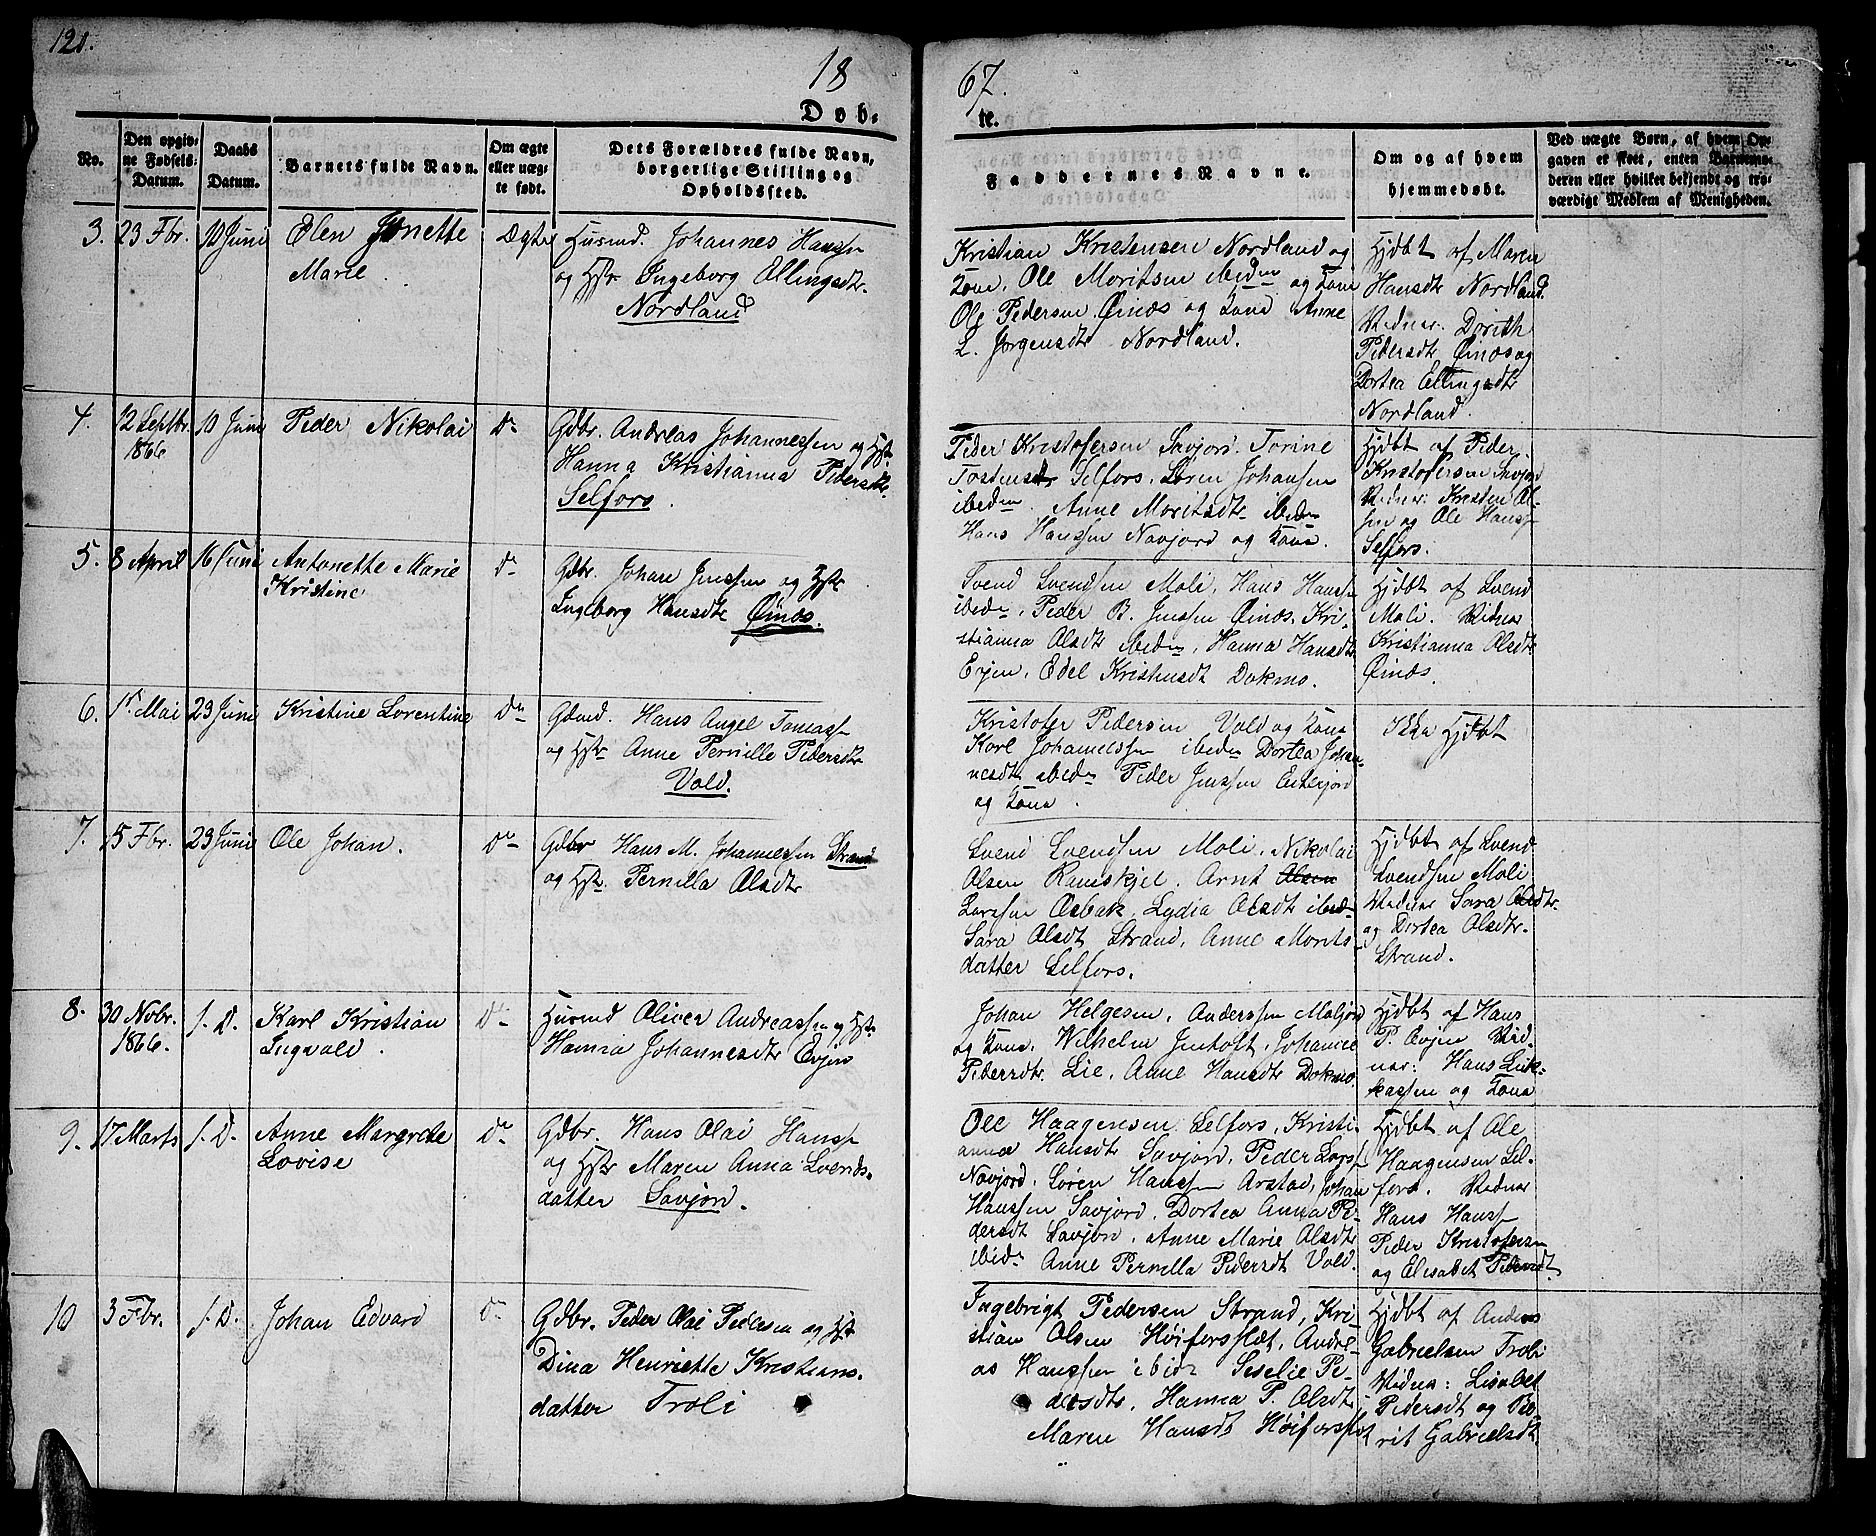 120.
18
67.
Døb-
te.
No.
Den opgiv-
ne Fødsels-
Datum.
Daabs
Datum.
Barnets fulde Navn.
Om ægte
eller uæg-
te født.
Dets Forældres fulde Navn,
borgerlige Stilling og
Opholdssted.
Faddernes Navne.
Om og af hvem
hjemmedøbt.
Ved uægte Børn, af hvem Op-
gaven er skeet, enten Barnemo-
deren eller hvilket bekjendt og tro-
værdigt Medlem af Menigheden.
3. 23 Fbr. 10 Juni
Elen Jonette
Marie
Ægte
Husmd. Johannes Hanss
og Hstr Ingeborg Ellingsdtr.
Nordland
Kristian Kristensen Nordland og
Kone, Ole Moritsen ibiden og Kone
Ole Pedersen Øinæs og Kona Anne
L. Jørgensdtr Nordland.
Hjdbt af Maren
Hansdtr Nordland.
Vidner: Dorith
Pedersdtr Øinæs og
Dortea Ellingsdtr
Nordland.
4. 12 Septbr.
1866
10 Juni
Peder Nikolai
Do
Gdbr. Andreas Johannessen og Hst.
Hanna Kristianna Pedersdtr
Selfors.
Peder Kristofersen Savjord. Torine
Tostensdtr Selfors. Søren Johansen
ibiden. Anne Moritsdtr ibiden
Hans Hanssen Navjord og Kona.
Hjdbt af Peder
Kristofersen Savjord
Vidner: Kristen Ol-
sen og Ole Hanss
Selfors.
5. 8 April 16 Juni
Antonette Marie
Kristine
Do
Gdbr. Johan Jenssen og Hstr
Ingeborg Hansdtr Øinæs.
Svend Svendsen Moli, Hans Hanss
ibiden, Peder B. Jenssen Øinæs. Kri-
stianna Olsdtr ibiden, Hanna Hansdtr
Evjen, Edel Kristensdt Dokmo.
Hjdbt af Svend
Moli. Vidner
Kristianna Olsdtr
Øinæs.
6. 1st Mai 29 Juni
Kristine Lorentine
Do
Gdmd. Hans Angel Tomass
og Hstr Anne Pernille Pedersdtr
Vold.
Kristofer Pedersen Vold og Kona
Karl Johannessen ibiden Dortea Johan-
nesdtr ibiden Peder Jenssen
og Kona.
Ikke Hjdbt
7. 15 Fbr. 29 Juni
Ole Johan.
Do
Gdbr Hans M. Johannessen Strand
og Hstr. Pernilla Olsdtr
Svend Svendsen Moli, Nikolai
Olsen Ramskjel. Arnt Olsen
Larssen Osbak, Lydia Olsdtr ibiden
Sara Olsdt Strand, Anne Morits-
datter Selfors.
Hjdbt af Svend
Svendsen Moli
Vidner Sara Olsdtr.
og Dortea Olsdtr.
Strand.
8. 30 Nobr.
1866.
s. D.
Karl Kristian
Ingvald.
Do
Husmd Oliver Andreassen og Hstr
Hanna Johannesdtr Evjen
Johan Helgesen, Anderssen Maljord
og Kone, Wilhelm Jentoft, Johanne
Pedersdtr. Lie, Anne Hansdtr Dokmo
Hjdbt af Hans
P. Evjen Vid-
ner: Hans Luk-
kassen og Kona
9. 17 Marts s. D.
Anne Margrete
Lovise
Do
Gdbr. Hans Olai Hanss
og Hstr Maren Anna Svends-
datter Savjord.
Ole Haagensen Selfors, Kristi-
anna Hansdtr Savjord, Peder Larss
Navjord. Søren Hanssen Arstad, Johan
Hanssen Savjord. Dortea Anna Pe-
dersdt Savjord. Anne Marie Olsdtr
ibiden Anne Pernilla Pedersdt Vold.
Hjdbt af Ole
Haagensen Sel-
fors. Vidner
Hans Hanss
Peder Kristofersen
og Elisabet Pedersdt.
10 3 Fbr. s. D.
Johan Edvard
Do
Gdbr. Peder Olai Pedersen og Hst
Dina Henriette Kristians-
datter Troli
Ingebrigt Pedersen Strand, Kri-
stian Olsen Høiforsslet, Andre-
as Hanssen ibid. Seselie Pe-
dersdtr. Hanna P. Olsdtr
Maren Hansdt Høiforsslet
Hjdbt af Anders
Gabrielsen Troli
Vidner: Lisabet
Pedersdt og Be-
rit Gabrielsdt.